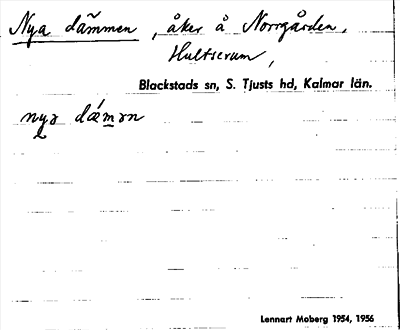 Nya dämmen, åker å Norrgården,
Hultserum,
Blackstads sn, S. Tjusts hd, Kalmar län.
nyə dǽmən
Lennart Moberg 1954, 1956